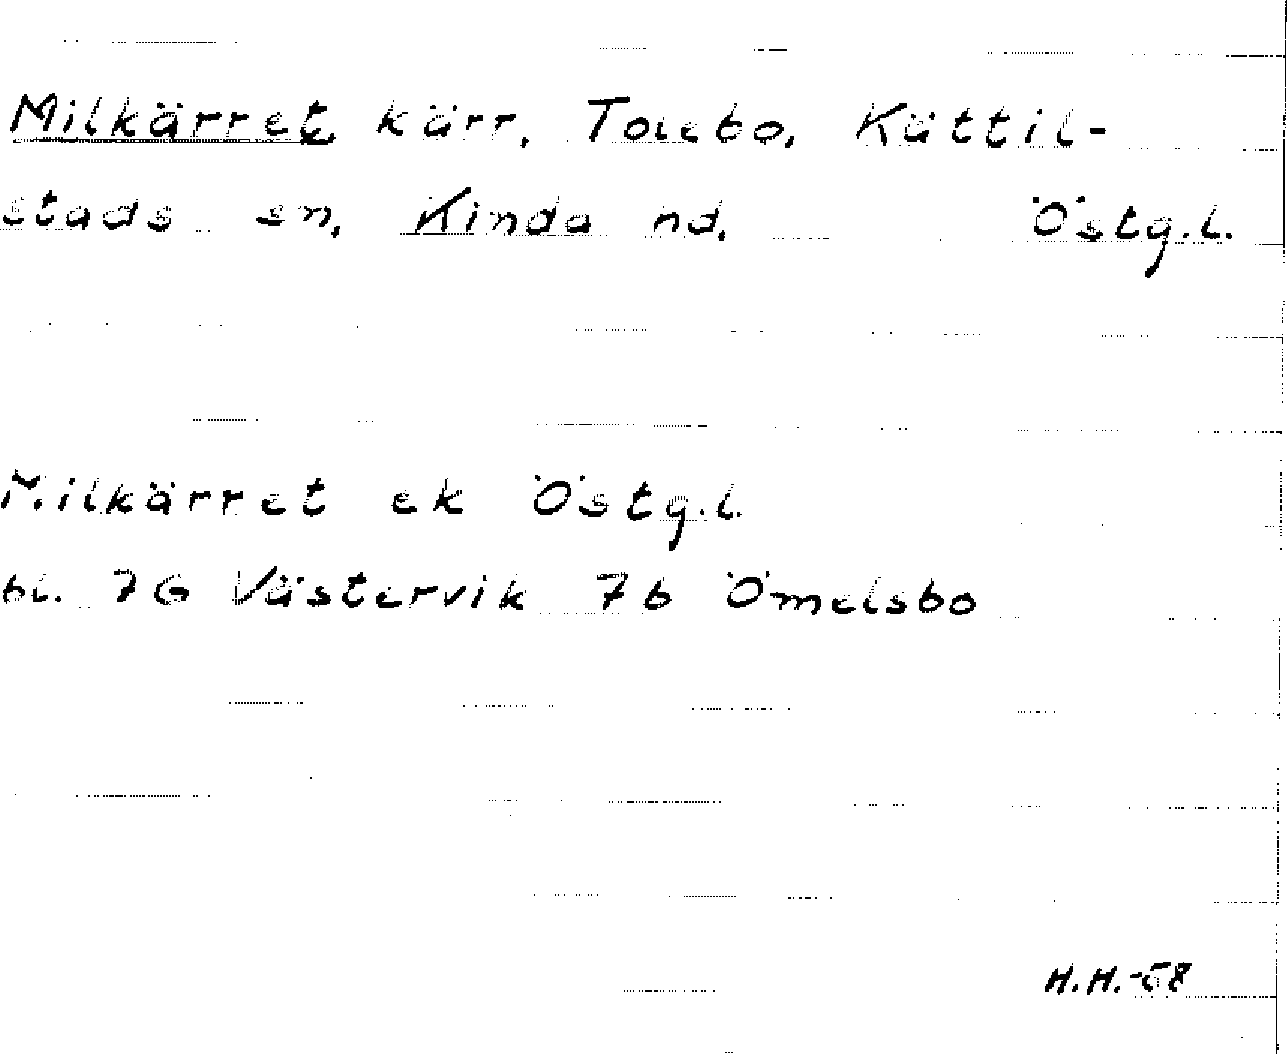 Milkärret kärr, Tolebo, Kättil-
stads sn, Kinda hd, Östg.l.
Milkärret ek Östg.l.
bl. 7G Västervik 7b Ömelsbo
H.H.-58